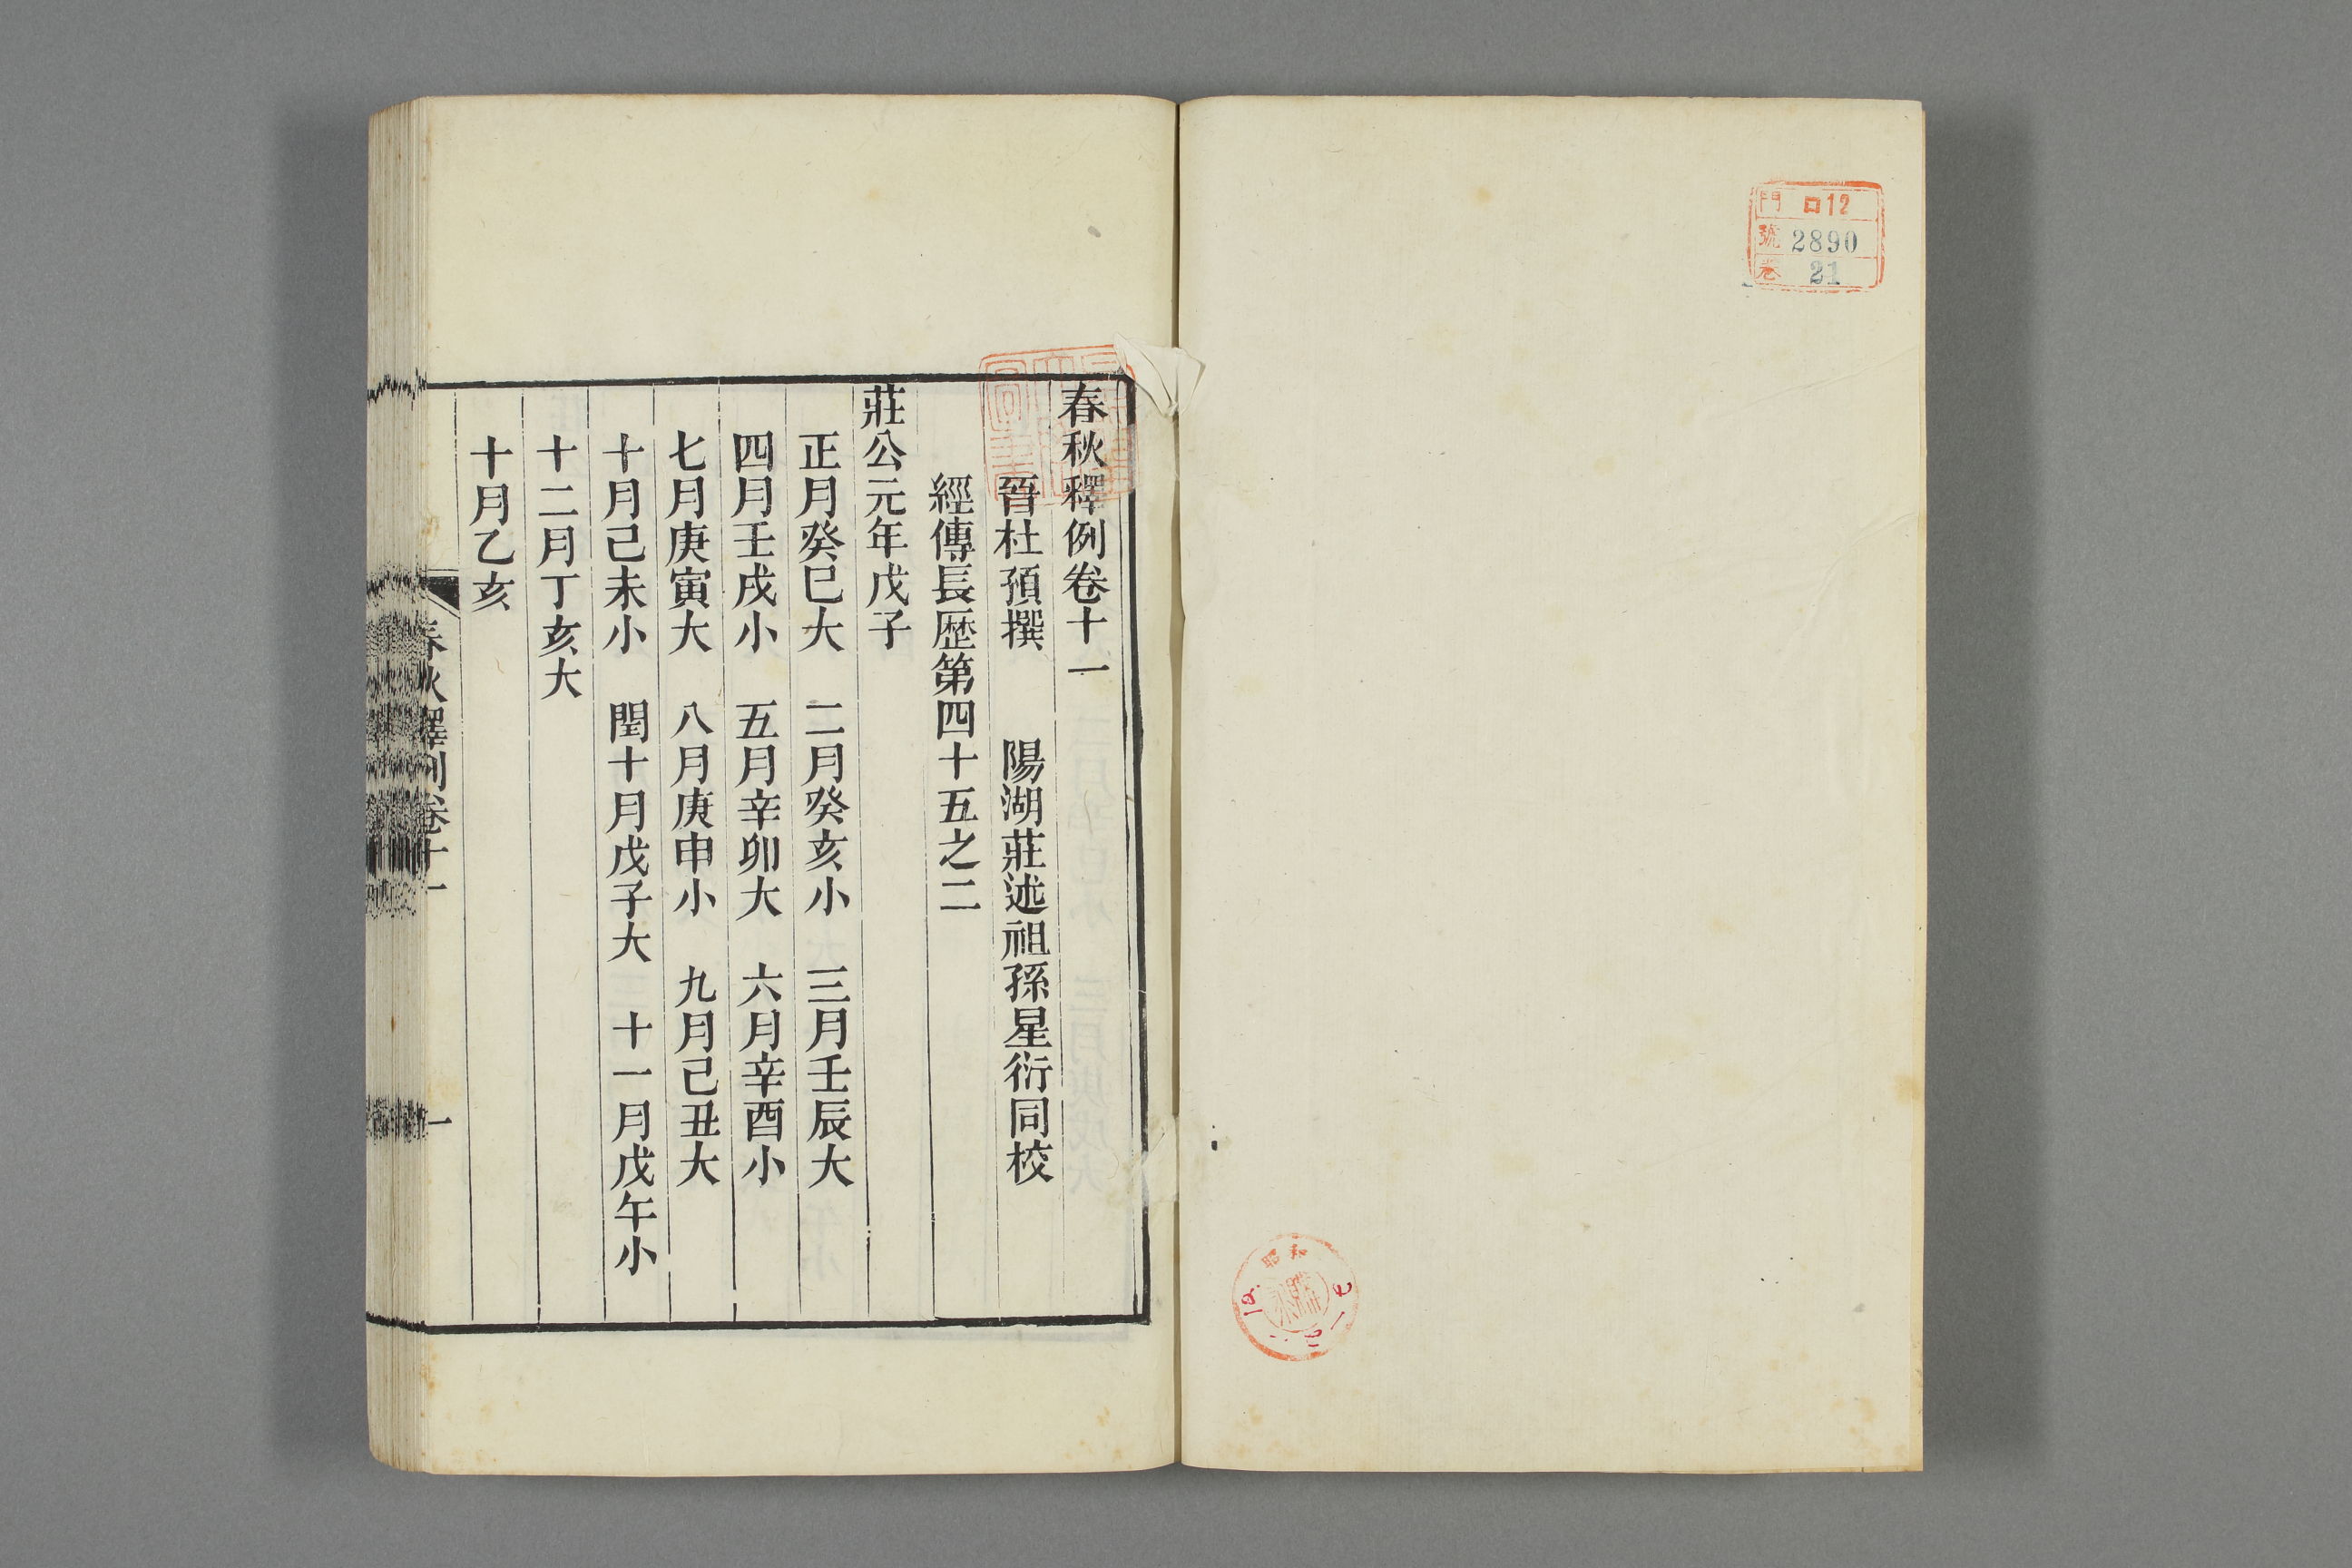 門 ロ12
號 2890
卷 21
昭和
春秋釋例卷十一
晉杜預撰 陽湖莊述祖孫星衍同校
經傳長歷第四十五之二
莊公元年戊子
正月癸巳大 二月癸亥小 三月壬辰大
四月壬戌小 五月辛卯大 六月辛酉小
七月庚寅大 八月庚申小 九月己丑大
十月己未小 閏十月戊子大 十一月戊午小
十二月丁亥大
十月乙亥
春秋釋例卷十一 一